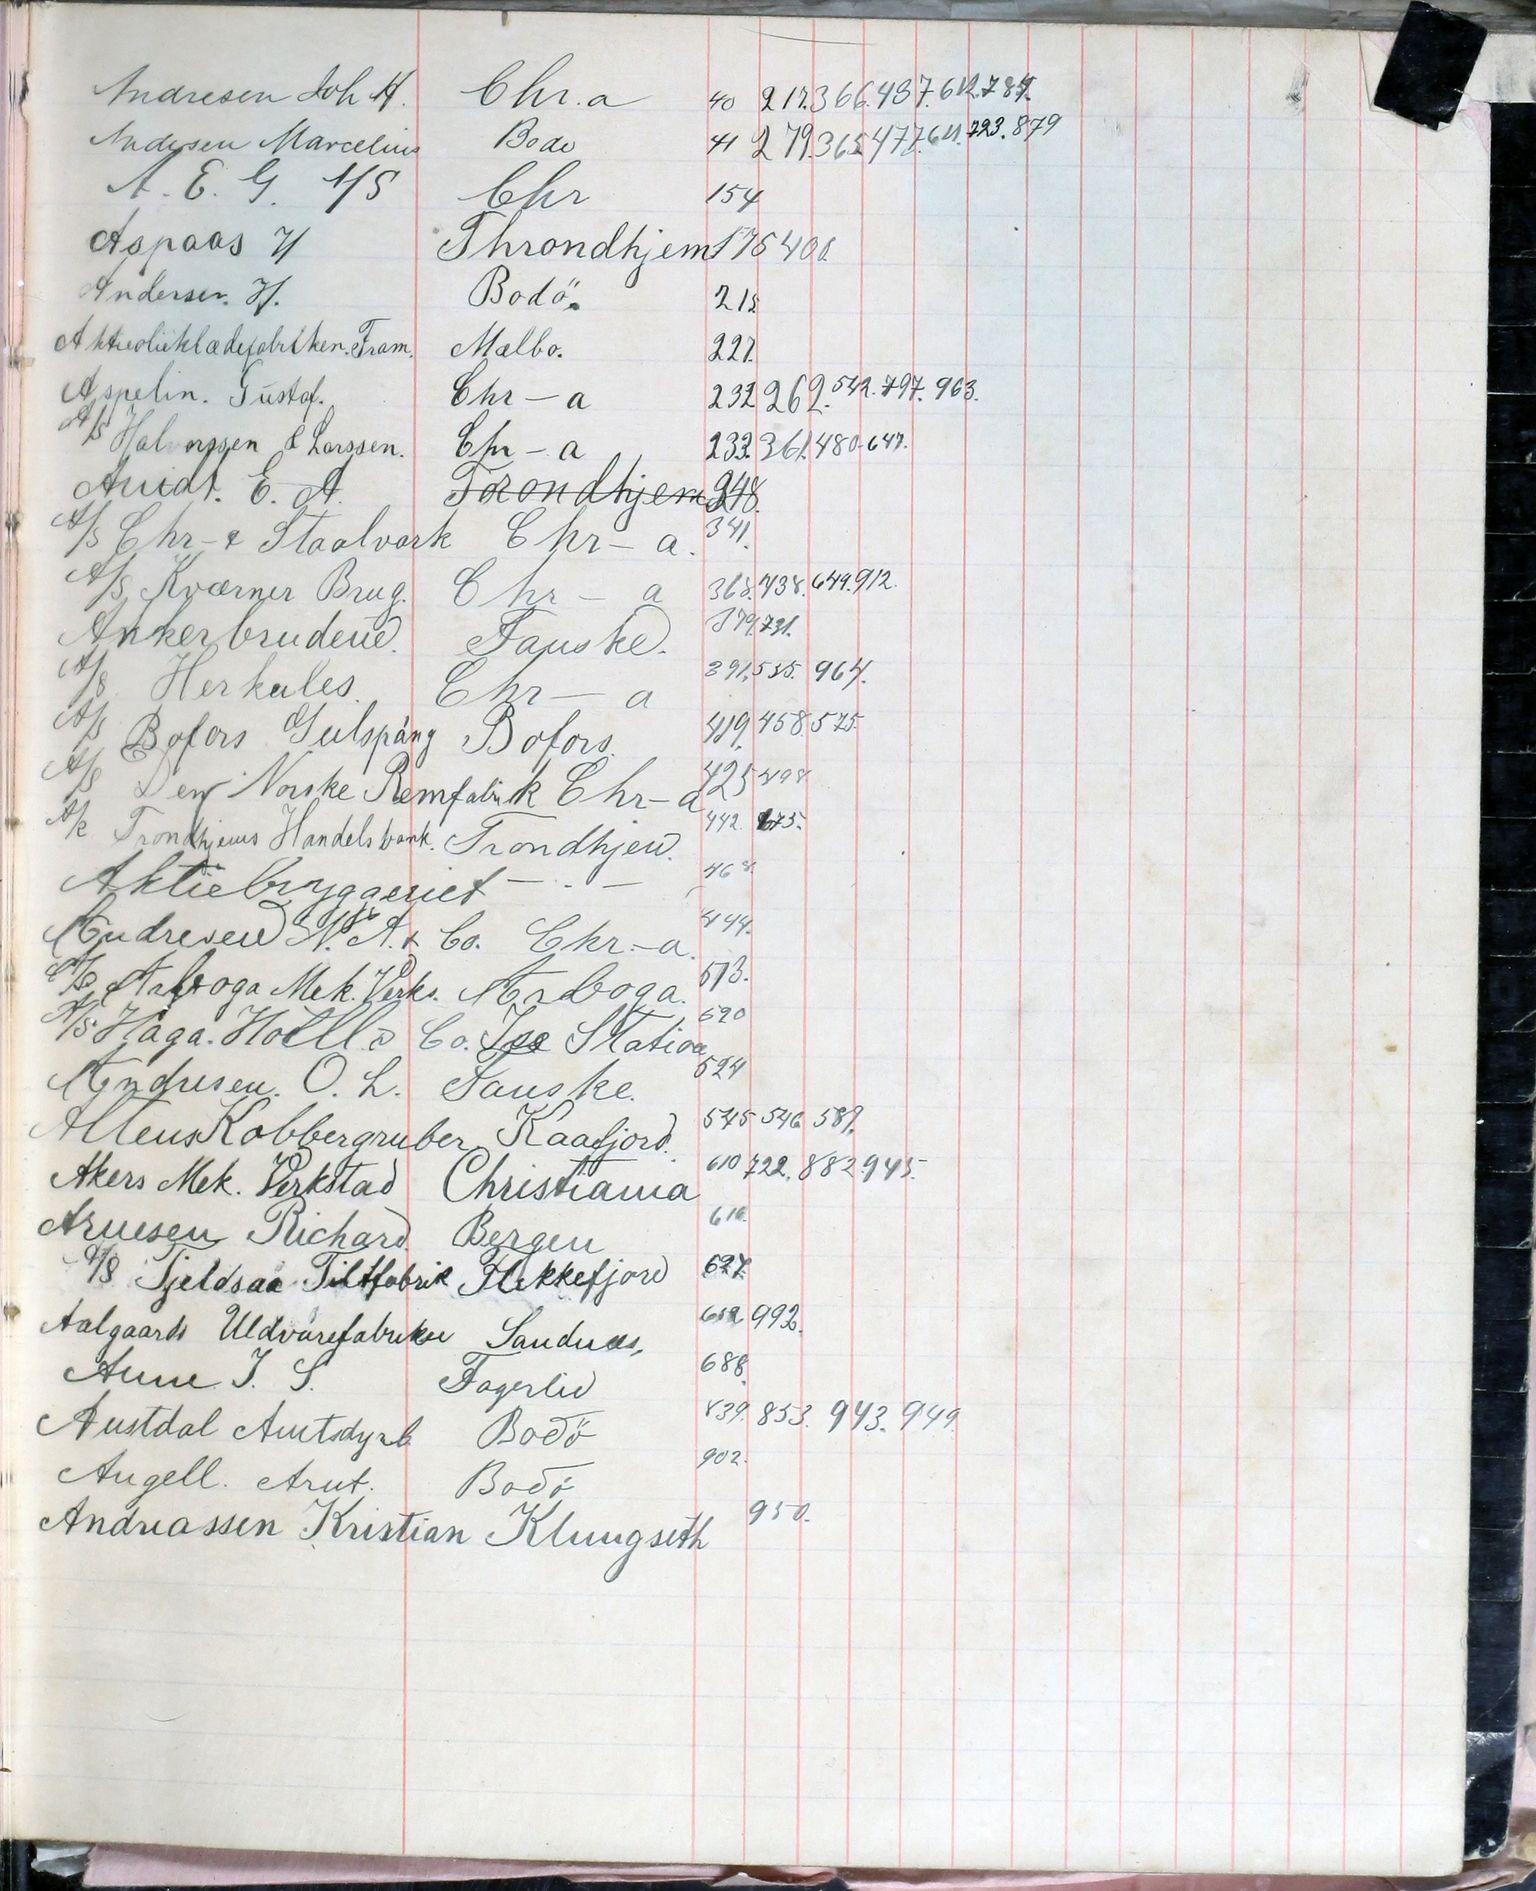 Andresen Joh H. Chr.a 40 217. 366. 487. 612. 784.
Andresen Marcelius Bodo 41 279. 365. 477. 611. 723. 879
A. E. G. A/S Chr 154
Aspaas H Throndhjem 176 400.
Andersen. H. Bodö. 218
Aktieolieklædefabriken. Fram. Mælbo. 227.
Aspelin. Gustaf. Chr - a 232 262. 542. 797. 963.
A/S Halvorssen & Larssen. Chr - a 233. 361. 480. 647.
E. A. Trondhjem 248.
A/S Chr - & Staalvark Chr - a. 341.
A/S Kværner Brug. Chr - a 368. 438. 649. 912.
Ankerbrudene. Fauske. 379. 731.
A/S Herkules. Chr - a 391. 535. 964.
A/S Bofors Gulspång Bofors. 419. 458. 575.
A/S Den Norske Remfabrik Chr - a 425 498
A/S Trondhjems Handelsbank. Trondhjem. 442. 675.
Aktiebryggeriet - . - 468.
Andresen N. A. & Co. Chr. - a. 444.
A/S Arboga Mek. Verks. Arboga. 513.
A/S Haga. Co. Ise Station 520
Andresen. O. L. Fauske. 524
Altens Kobbergruber Kaafjord. 545 546 589.
Akers Mek. Verkstad Christiania 610 722. 882. 945.
Arnesen Richard Bergen 616.
A/S Fjeldsaa Filtfabrik Flekkefjord 627.
Aalgaards Uldvarefabriker Sandnes, 652 992.
Anne J. S. Fagerlid 688.
Austdal Amtsdyrl. Bodö 839. 853. 943. 949.
Angell. Arnt. Bodö 902.
Andreassen Kristian Klungseth 950.